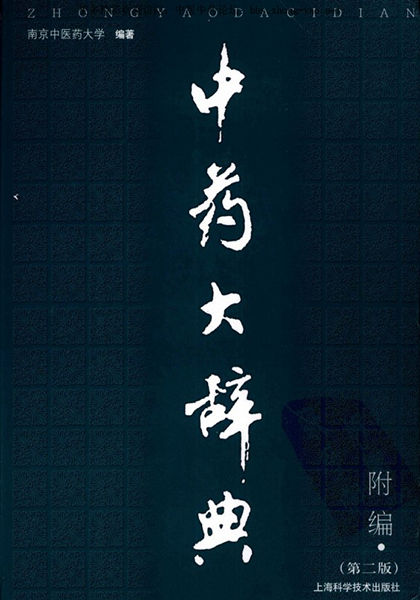 ZHONGYAODACIDIAN
南京中医药大学 编著
中药大辞典
附编·
(第二版)
上海科学技术出版社